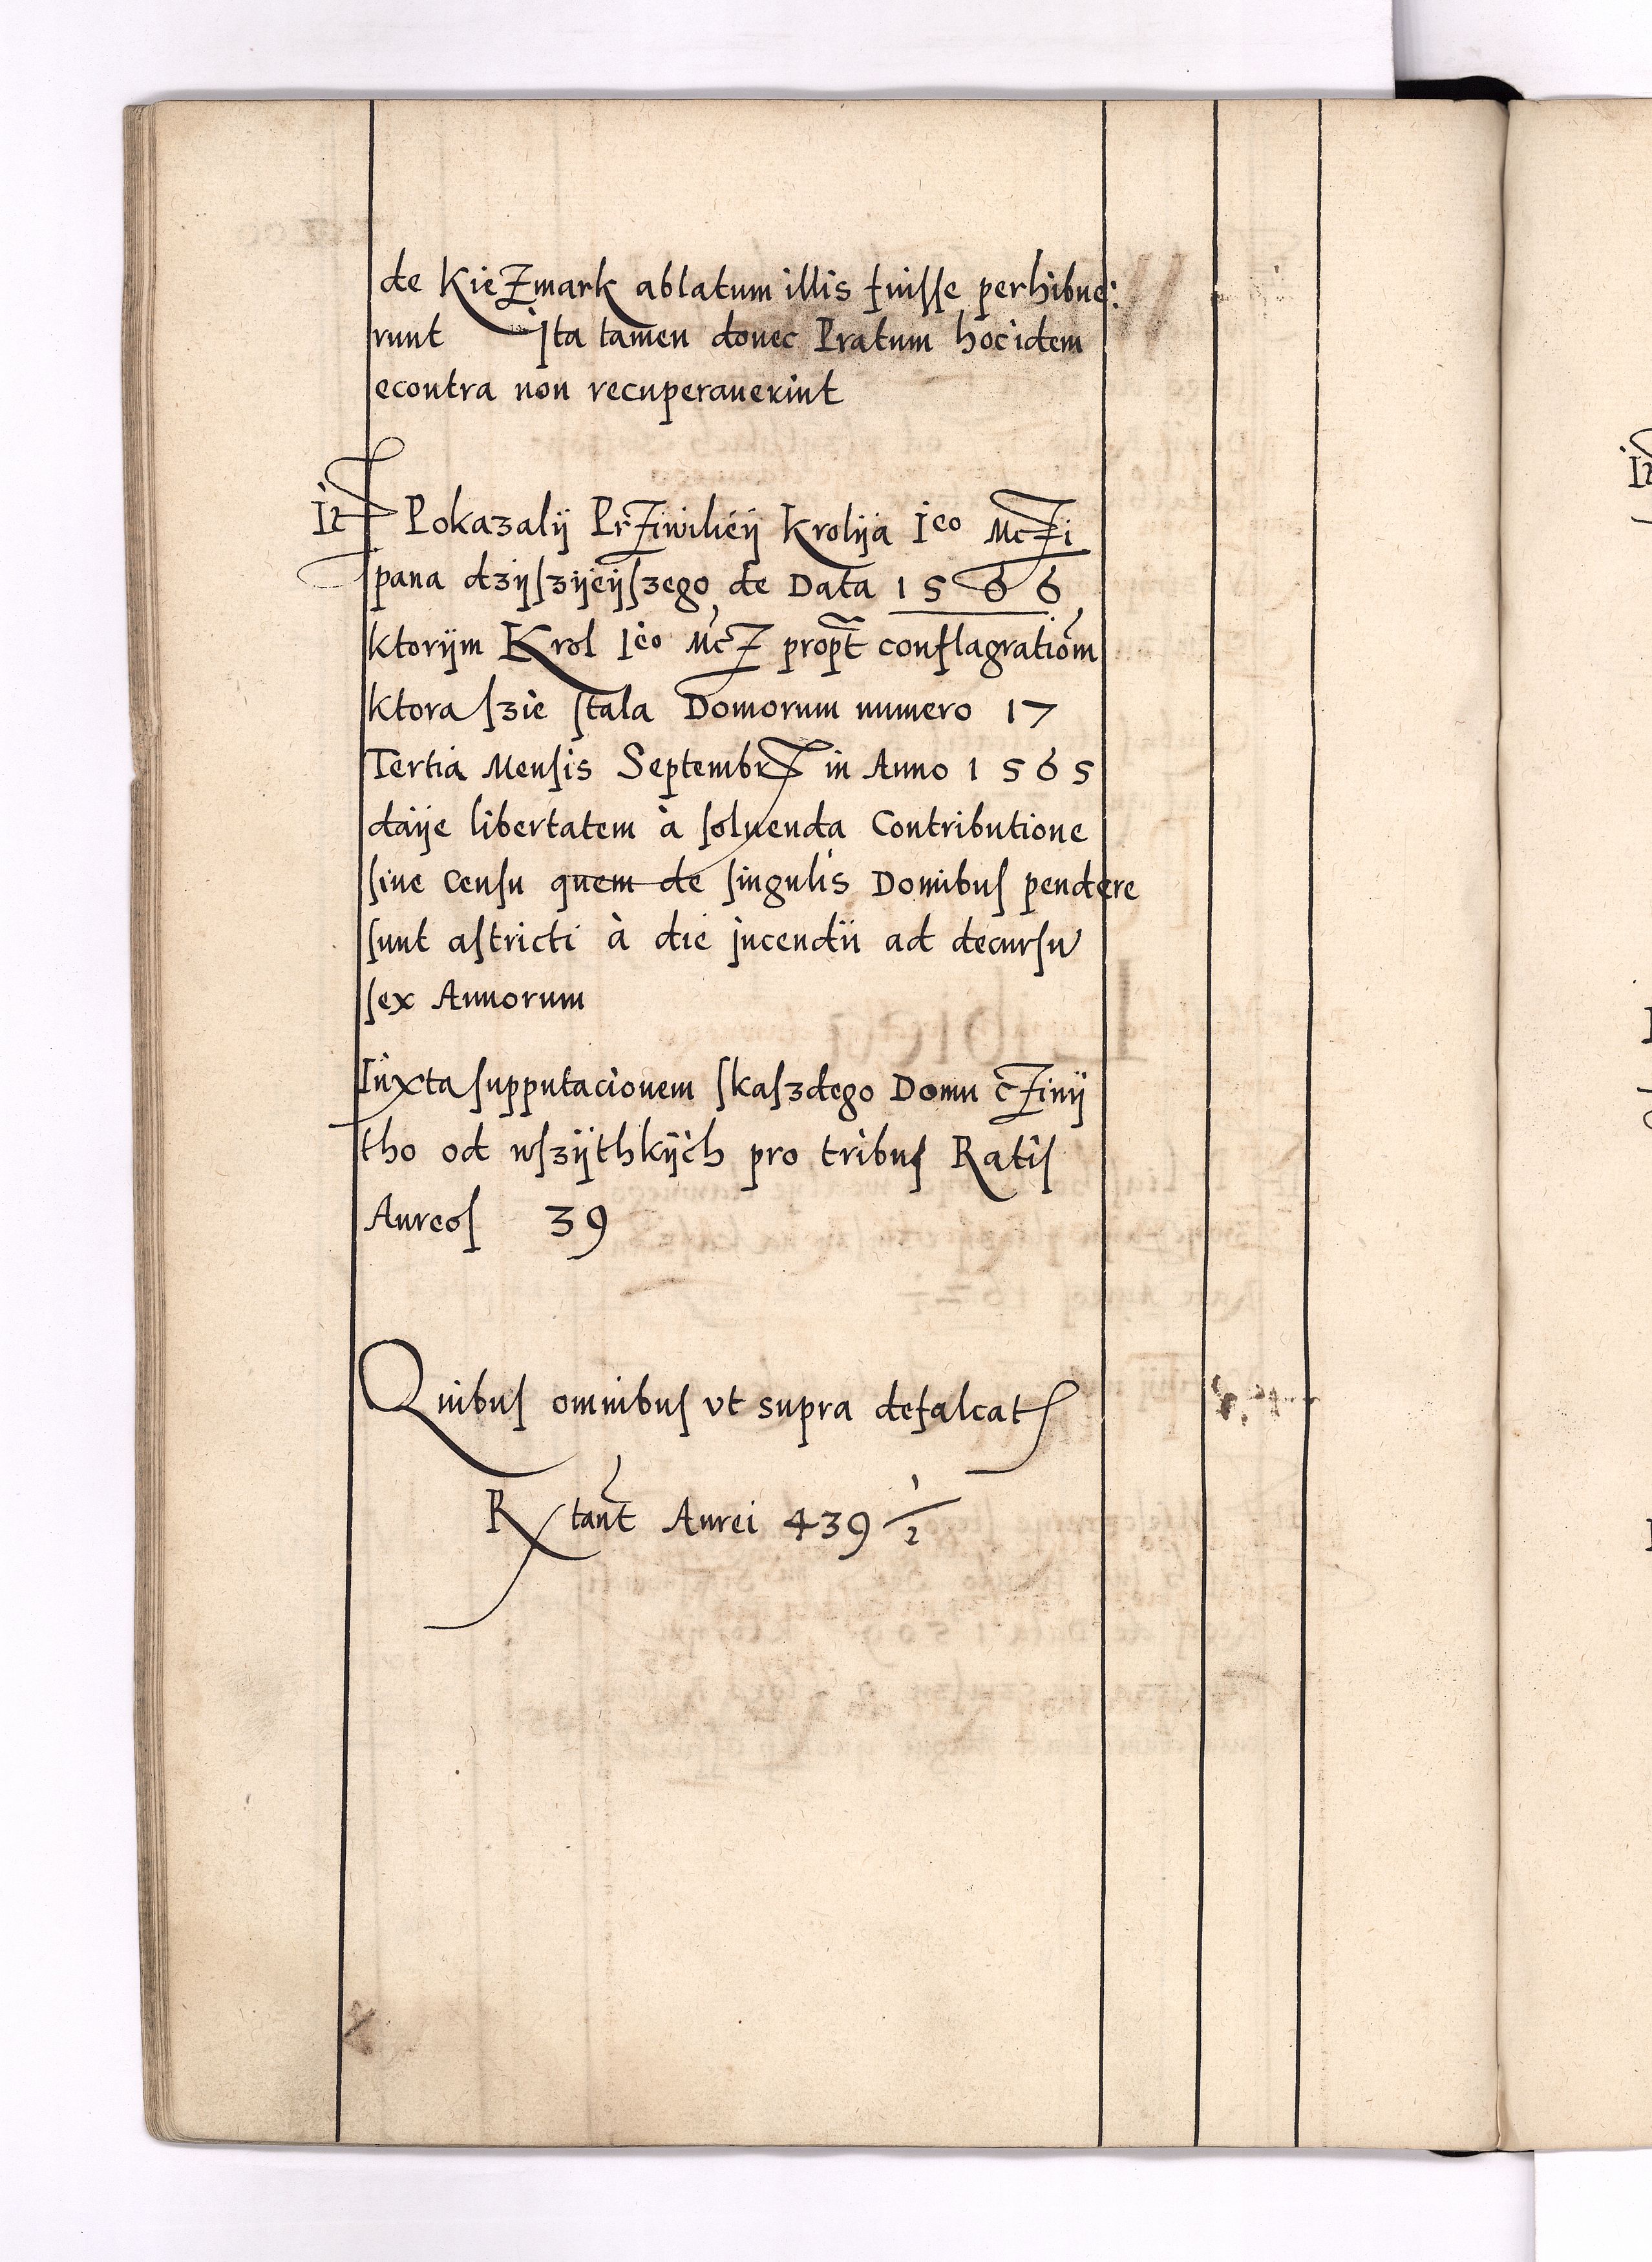 de KieZmark ablatum illis fuiſſe perhibue:
runt Ita tamen donec Pratum hoc idem
econtra non recuperauerint
It Pokazalÿ PrZiwileÿ Krolÿa Ieo McZi
pana dzÿſzÿeÿſzego de Data 1566
ktorÿm Krol Ieo McZ propt conflagrationem
ktora ſzie ſtala Domorum numero 17
Tertia Menſis Septembr in Anno 1565
daÿe libertatem à ſoluenda Contributione
ſiue Cenſu quem de ſingulis Domibuſ pendere
ſunt aſtricti à die jncendii ad decurſu
ſex Annorum
Iuxta ſupputacionem ſkaſzdego Domu cZinÿ
tho od wſzÿthkÿch pro tribuſ Ratiſ
Aureoſ 39
Quibuſ omnibuſ vt supra defalcat
Rx tant Aurei 439 1/2